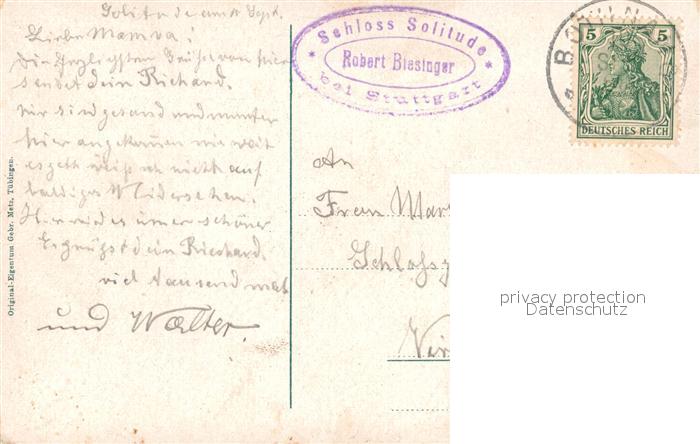 Solitude am Sept.
Liebe Mamma!
Die herzlichsten Grüße von hier
sendet dein Richard.
Wir sind gesund und munter
hier angekommen wie weit
es geht weiß ich nicht auf
baldiges Widersehen.
Hier wird es immer schöner
Es grüßt dein Riechard
viel tausend mal
und Walter.
Original-Eigentum Gebr. Metz, Tübingen.
* Schloss Solitude *
Robert Biesinger
bei Stuttgart
5 5
DEUTSCHES REICH
An
Frau
Schloss
privacy protection
Datenschutz